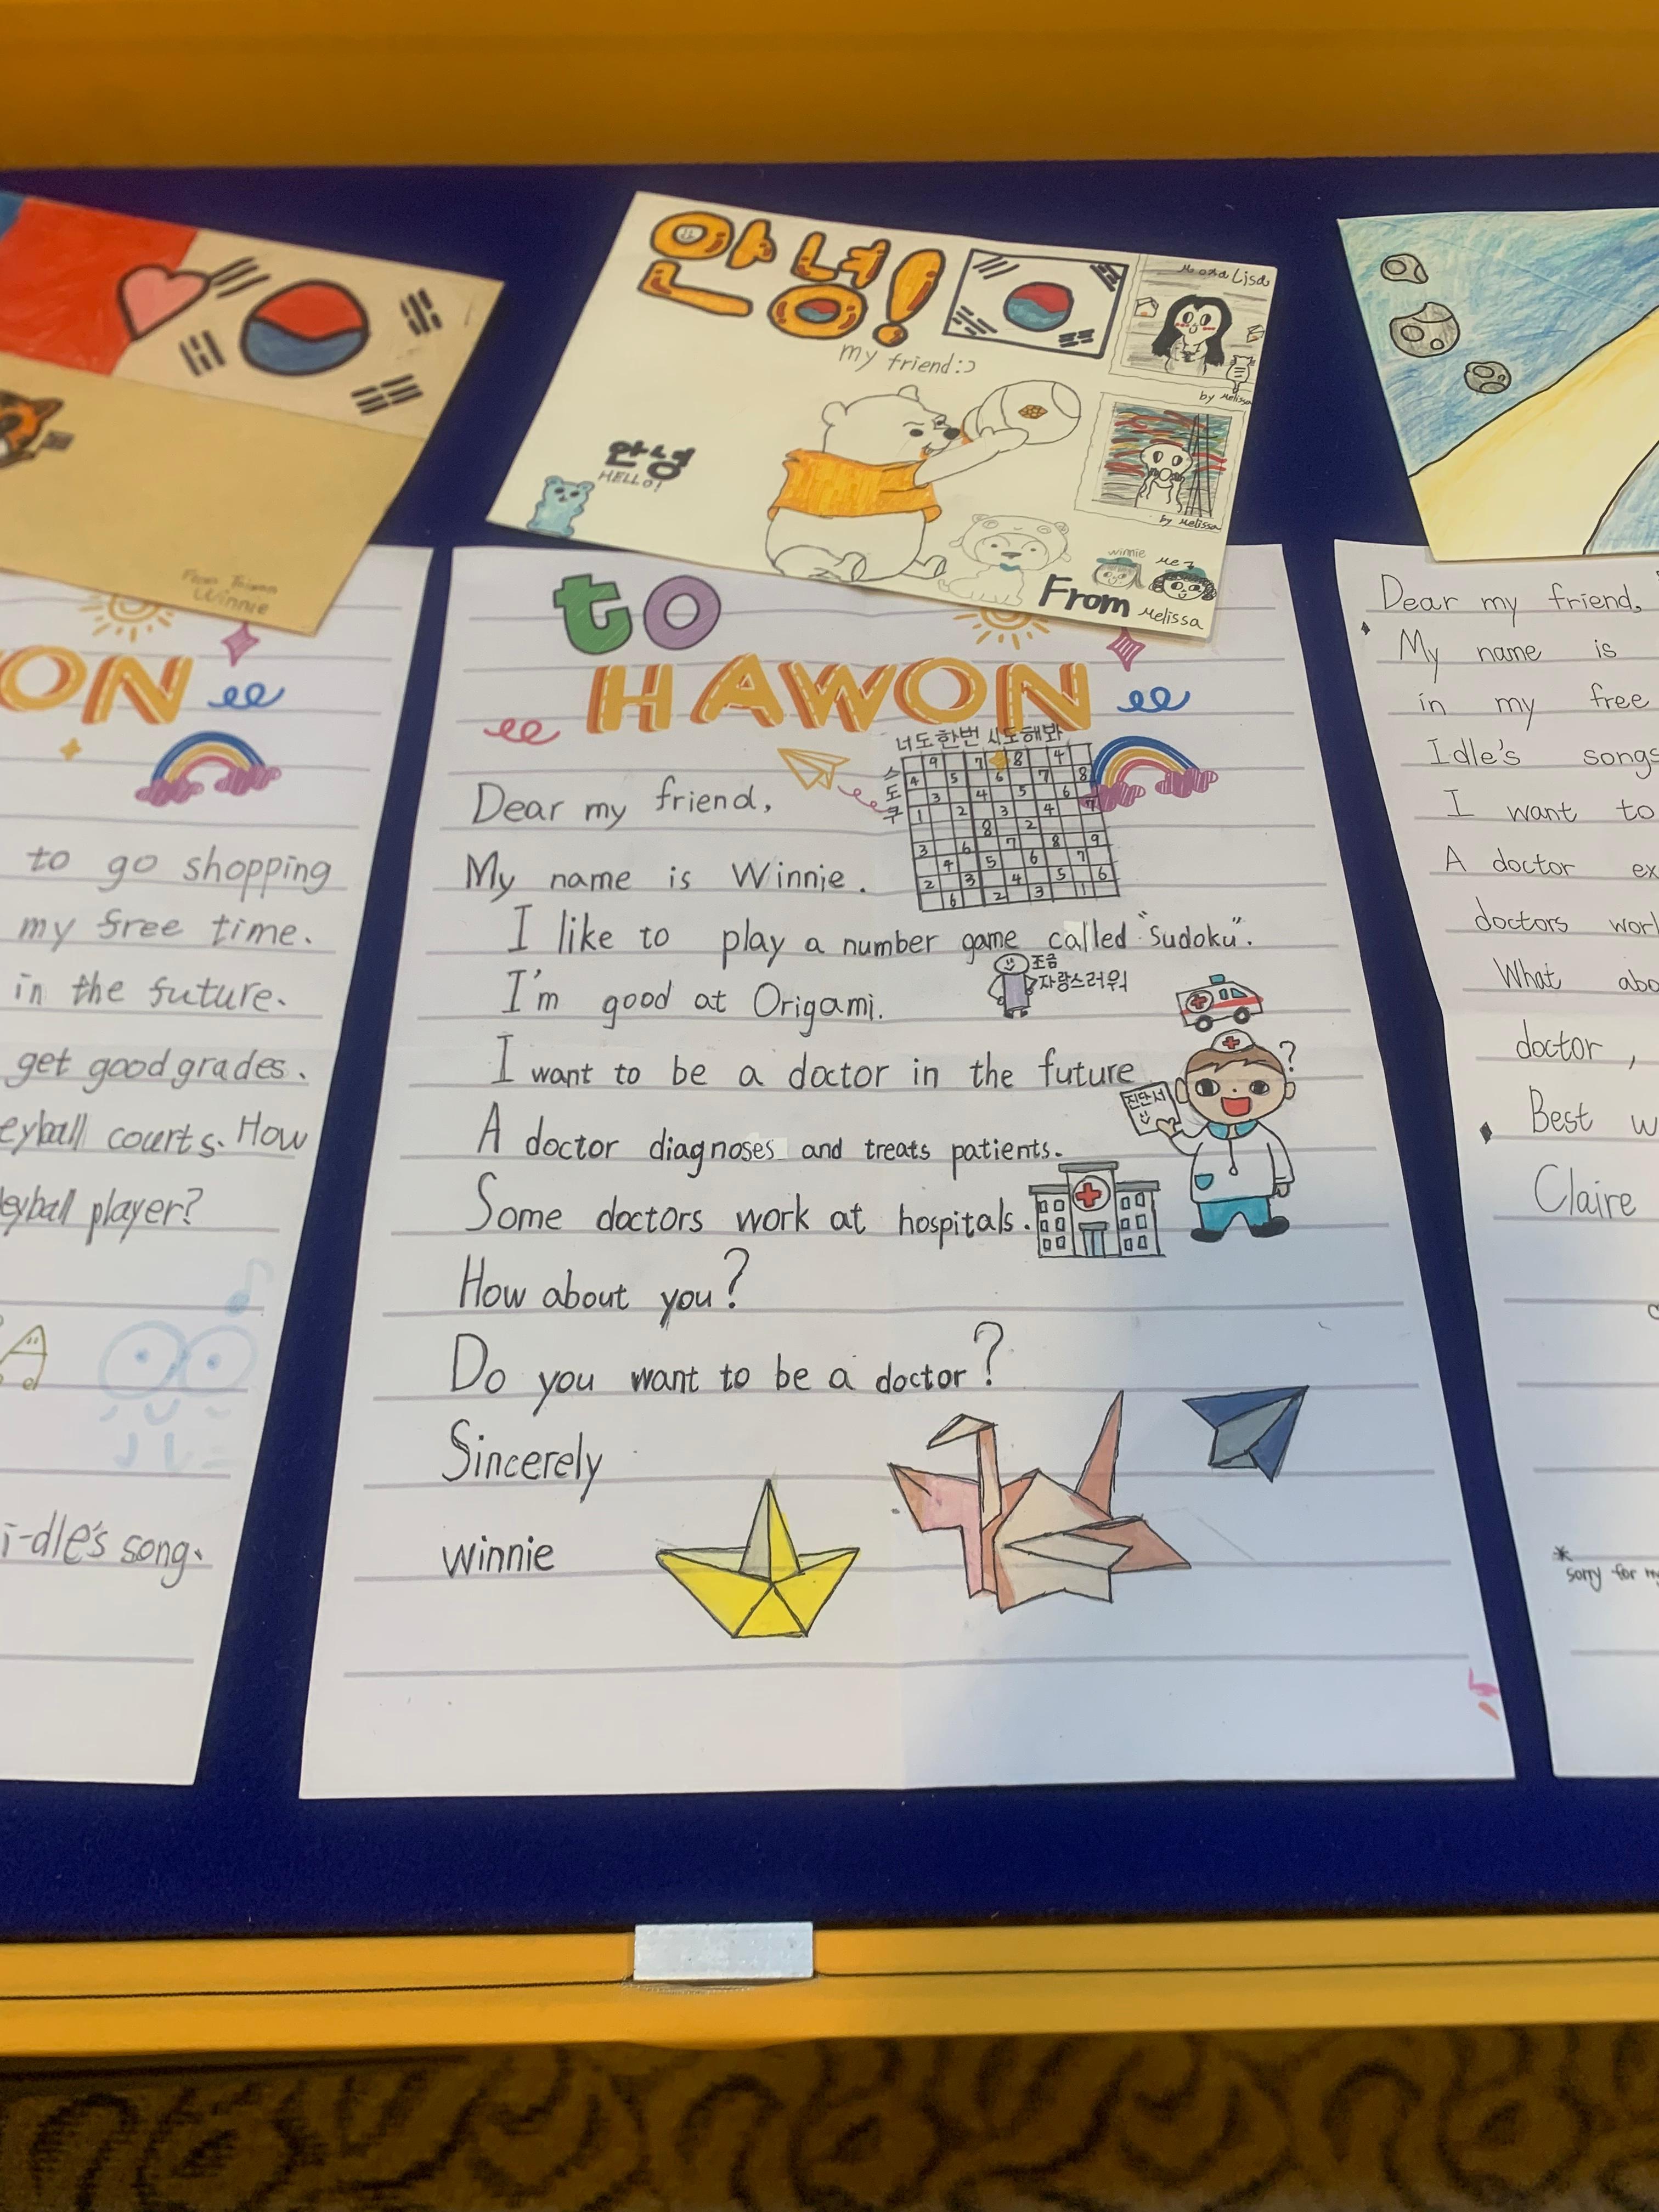 From Taiwan
Winnie
ON
to go shopping
my free time.
in the future.
get good grades.
eyball courts. How
leyball player?
i-dle's song.
안녕!
my friend:)
안녕
HELLO!
Mona Lisa
by Melissa
by Melissa
winnie
me
From Melissa
to
HAWON
너도 한번 시도해봐
스도쿠
9 7 8 4
4 5 6 7 8
3 4 5 6
1 2 3 4 7
8 2
3 6 7 8 9
4 5 6 7
2 3 4 5 6
6 2 3 1
Dear my friend,
My name is Winnie.
I like to play a number game called "Sudoku".
I'm good at Origami.
조금
자랑스러워
I want to be a doctor in the future
?
진단서
A doctor diagnoses and treats patients.
Some doctors work at hospitals.
How about you?
Do you want to be a doctor?
Sincerely
winnie
Dear my friend,
My name is
in my free
Idle's songs
I want to
A doctor ex
doctors wor
What abo
doctor,
Best w
Claire
*
sorry for my